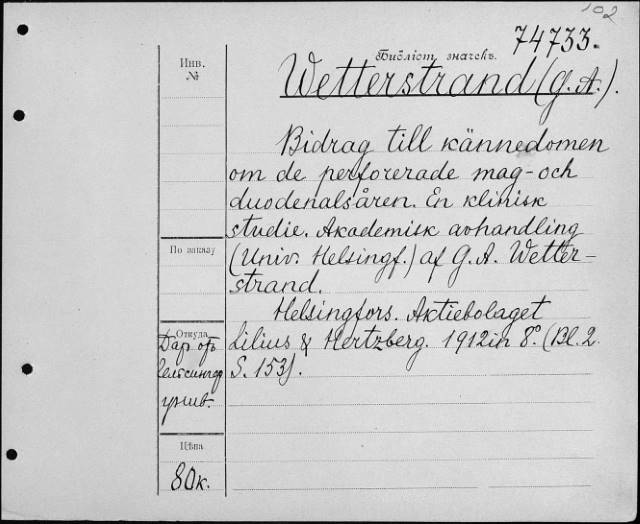 102
74733.
Библіот. значекъ.
Инв.
№
Wetterstrand (G. A.).
Bidrag till kännedomen
om de perforerade mag- och
duodenalsåren. En klinisk
studie. Akademisk avhandling
По заказу
(Univ. Helsingf.) af G. A. Wetter-
strand.
Helsingfors. Aktiebolaget
Откуда
Даръ отъ
Lilius & Hertzberg. 1912 in 8°. (Bl. 2.
Гельсингф
S. 153).
унив.
Цѣна
80 к.